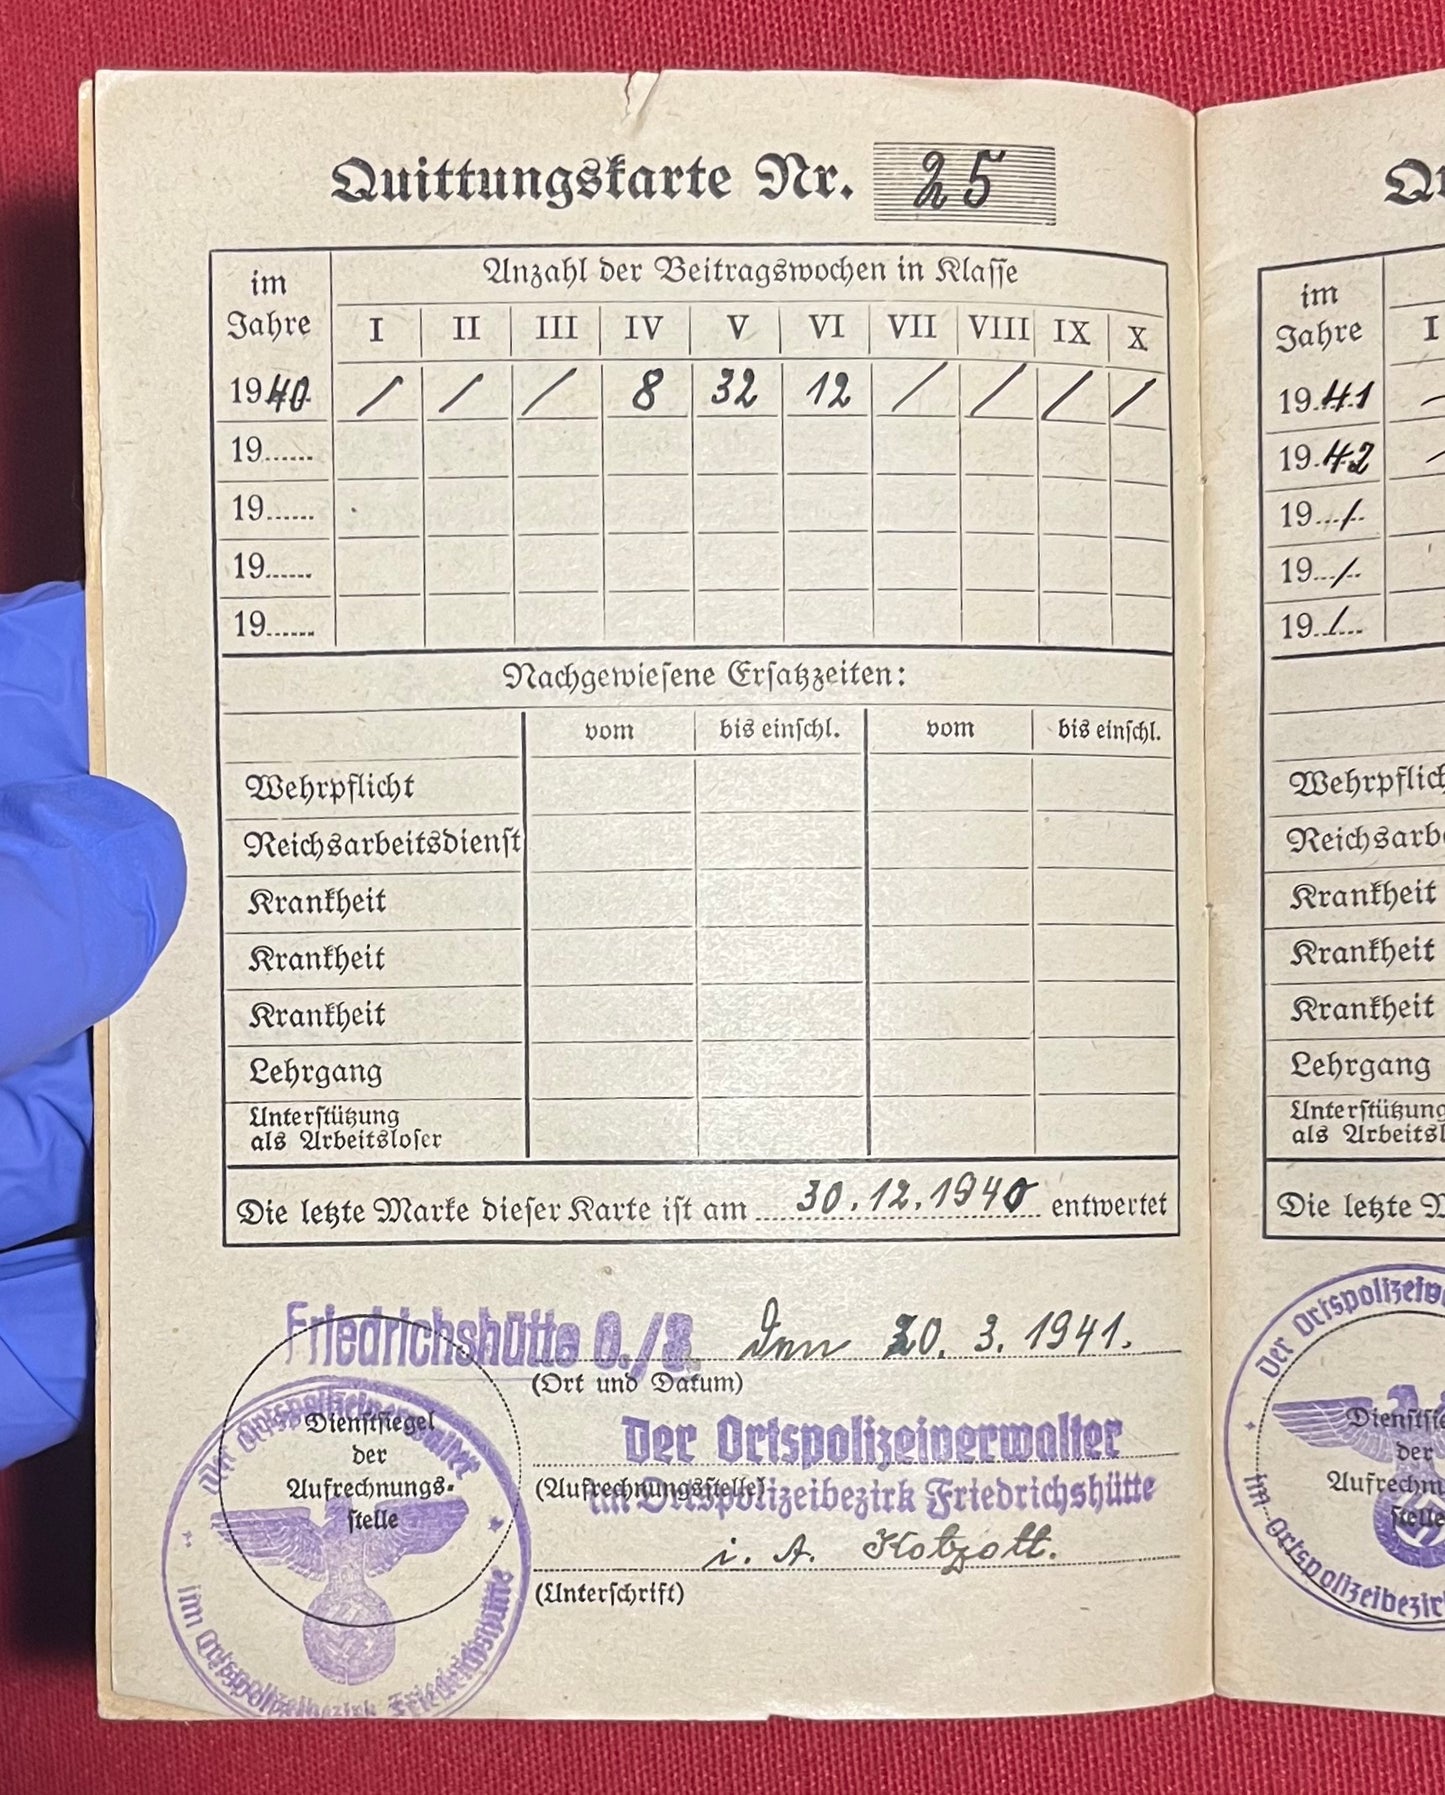 Quittungskarte Nr. 25
im Jahre
Anzahl der Beitragswochen in Klasse
I II III IV V VI VII VIII IX X
1940. / / / 8 32 12 / / / /
19......
19......
19......
19......
Nachgewiesene Ersatzzeiten:
vom bis einschl. vom bis einschl.
Wehrpflicht
Reichsarbeitsdienst
Krankheit
Krankheit
Krankheit
Lehrgang
Unterstützung
als Arbeitsloser
Die letzte Marke dieser Karte ist am 30.12.1940 entwertet
Friedrichshütte O./S. den 20. 3. 1941.
(Ort und Datum)
Der Ortspolizeiverwalter
(Aufrechnungsstelle)
im Ortspolizeibezirk Friedrichshütte
i. A. Kotzott.
(Unterschrift)
Dienstsiegel
der
Aufrechnungs-
stelle
Der Ortspolizeiverwalter
im Ortspolizeibezirk Friedrichshütte
im
Jahre
I
19.41
19.42
19../..
19../..
19../...
Krankheit
Krankheit
Krankheit
Lehrgang
Unterstützung
als
Die letzte
Der Ortspolizeiver
im Ortspolizeibezirk
der
stelle